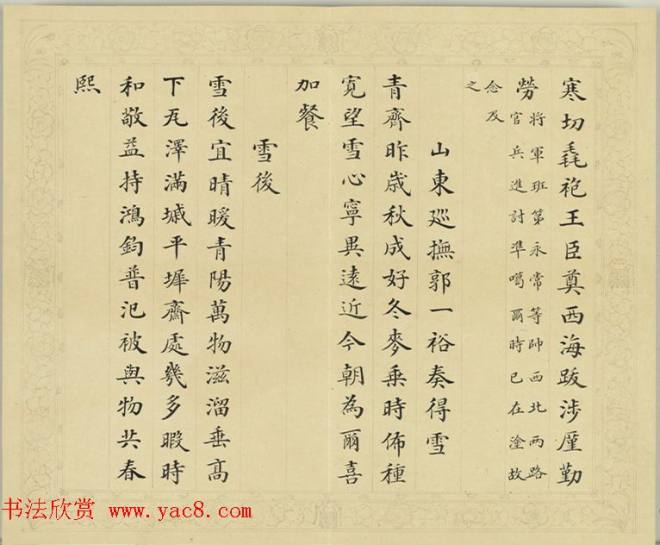 寒切毳袍王臣奠西海跋涉廑勤
勞
將軍班第永常等帥西北兩路
官兵進討準噶爾時已在塗故
念及
之
山東巡撫郭一裕奏得雪
青齊昨歲秋成好冬麥乗時佈種
寬望雪心寧異遠近今朝為爾喜
加餐
雪後
雪後宜晴暖青陽萬物滋溜垂髙
下瓦澤滿墄平墀齋處幾多暇時
和敬益持鴻鈞普氾被與物共春
熙
书法欣赏 www.yac8.com